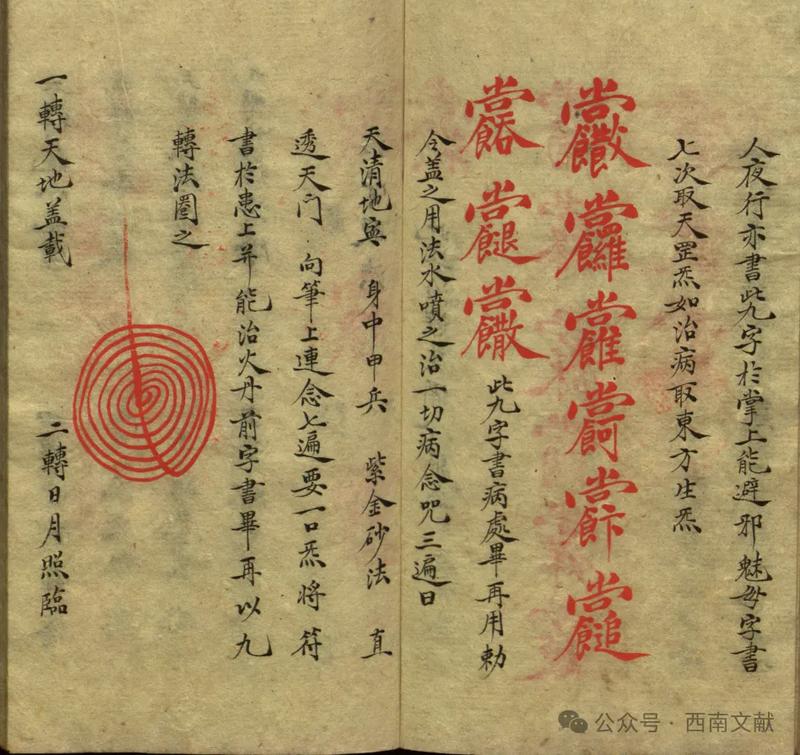 人夜行亦書此九字於掌上能避邪魅每字書
七次取天罡炁如治病取東方生炁
此九字書病處畢再用勅
令盖之用法水噴之治一切病念咒三遍曰
天清地寕 身中甲兵 紫金砂法 直
透天门 向筆上連念七遍要一口炁將符
書於患上并能治火丹前字書畢再以九
轉法圈之
一轉天地盖載 二轉日月照臨
公众号 · 西南文献